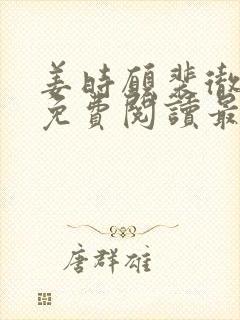 姜時願裴徹
免費閱讀最
唐群雄